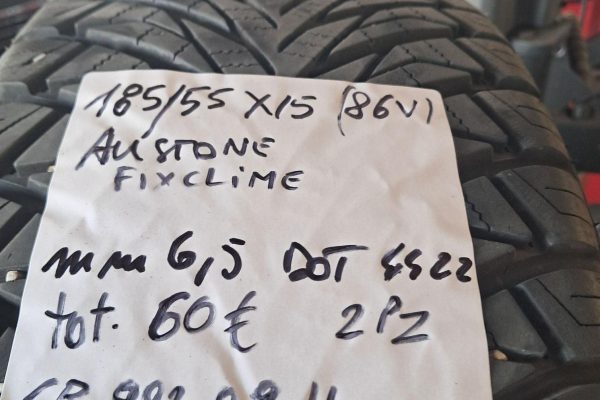 185/55 X15 (86V)
AUSTONE
FIXCLIME
mm 6,5 DOT 4422
tot. 60€ 2PZ